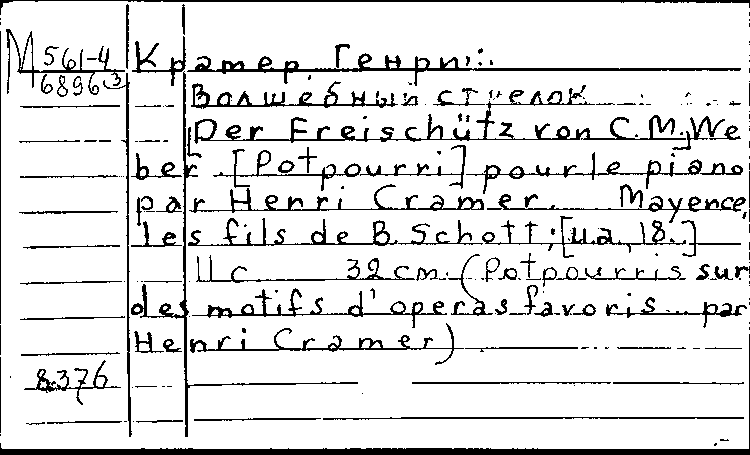 М 561-4
6896 (3)
Крамер, Генри.
Волшебный стрелок
[Der Freischütz von C.M. We
ber]. [Potpourri] pour le piano
par Henri Cramer. Mayence,
les fils de B. Schott; [u.a., 18..]
11 c. 32 cm. (Potpourris sur
des motifs d'operas favoris... par
Henri Cramer)
8376